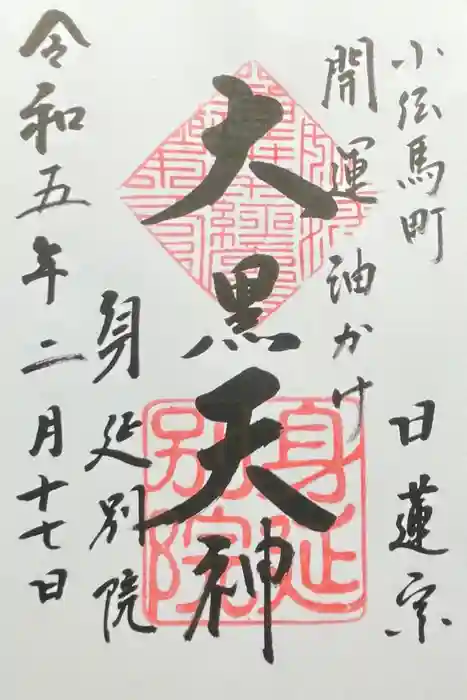 小伝馬町
日蓮宗
開運油かけ
大黒天神
身延別院
令和五年二月十七日
身延
別院